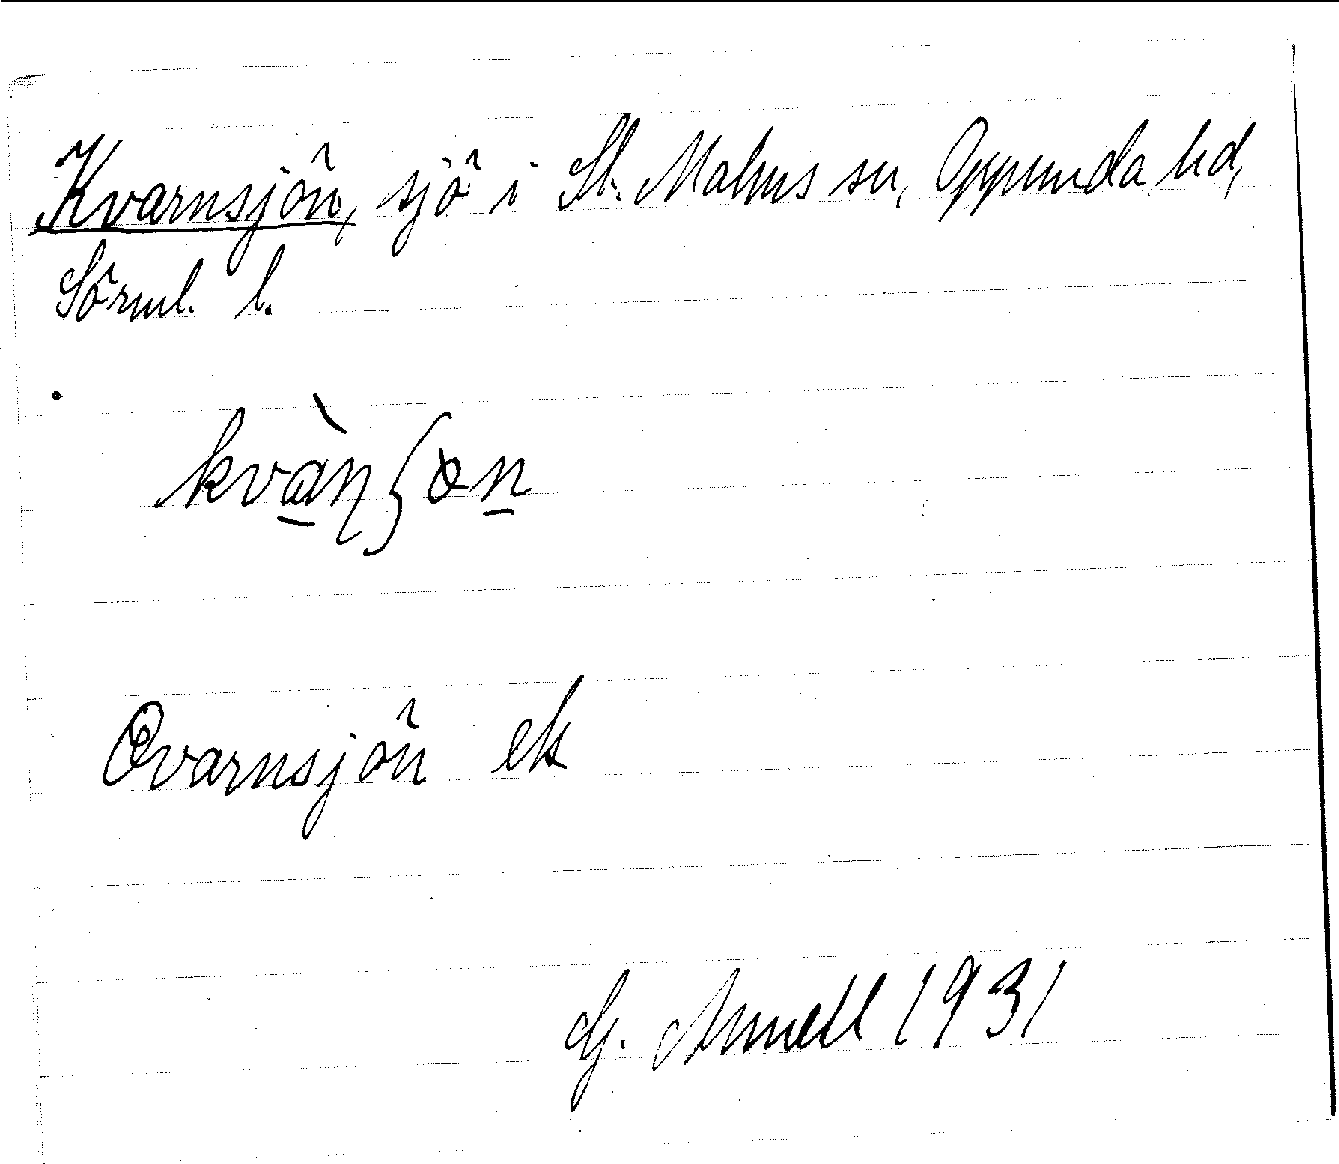 Kvarnsjön, sjö i St. Malms sn, Oppunda hd,
Sörml. l.
kvàṉʃöṉ
Qvarnsjön ek
G. Annell 1931